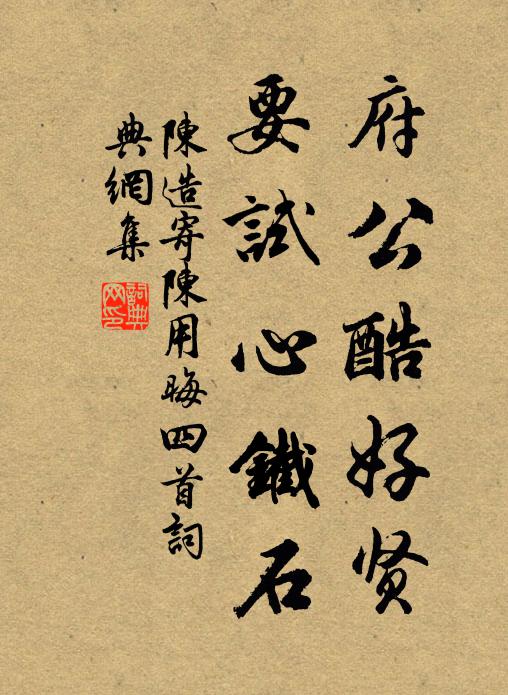 府公酷好贤
要試心鐵石
陳造寄陳用晦四首詞
典網集
詞典网印